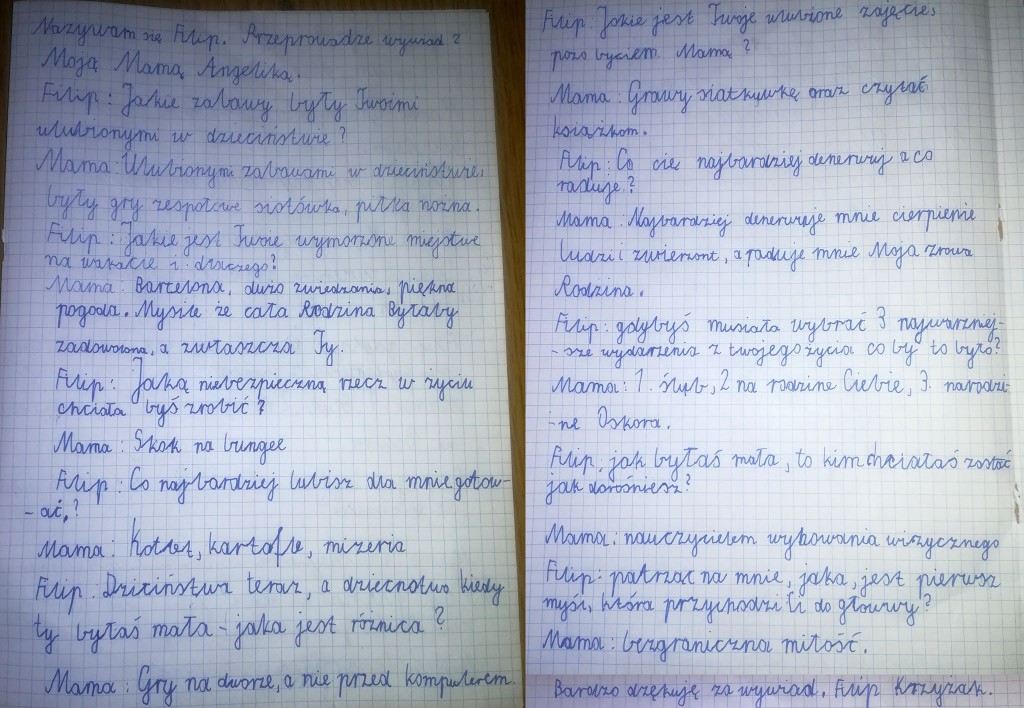 Nazywam się Filip. Przeprowadze wywiad z
Moją Mamą Angeliką.
Filip: Jakie zabawy były Twoimi
ulubionymi w dzieciństwie?
Mama: Ulubionymi zabawami w dzieciństwie,
były gry zespołowe siołówka, piłka nożna.
Filip: Jakie jest Twoje wymorzone miejstwe
na wakacie i dlaczego?
Mama: Barcelona, dużo zwiedzania, piękna
pogoda. Myśle że cała Rodzina Byłaby
zadowolona, a zwłaszcza Ty.
Filip: Jaką niebezpieczną rzecz w życiu
chciała byś zrobić?
Mama: Skok na bungee
Filip: Co najbardziej lubisz dla mnie gotow-
- ać,?
Mama: Kotlet, kartofle, mizeria
Filip: Dziciństwa teraz, a dziecnstwo kiedy
ty byłaś mała - jaka jest różnica?
Mama: Gry na dworze, a nie przed komputerem.
Filip: Jakie jest Twoje ulubione zajęcie,
pozo byciem Mamą?
Mama: Grawy siatkywkę oraz czytać
książkom.
Filip: Co cię najbardziej denerwuj a co
raduje?
Mama: Najbardziej denerwuje mnie cierpienie
ludzi i zwierzont, a raduje mnie Moja zrowa
Rodzina.
Filip: gdybyś musiała wybrać 3 najwarzniej-
- sze wydarzenia z twojego życia co by to było?
Mama: 1. ślub, 2 na rodzine Ciebie, 3. narodzi-
- ne Oskora.
Filip, jak byłaś mała, to kim chciałaś zostać
jak dorośniesz?
Mama: nauczycielem wykowania wizycznego
Filip: patrzac na mnie, jaka, jest pierwsz
myśl, która przychodzi Ci do głowwy?
Mama: bezgraniczna miłość.
Bardzo dzękuję za wywiad. Filip Krzyżak.